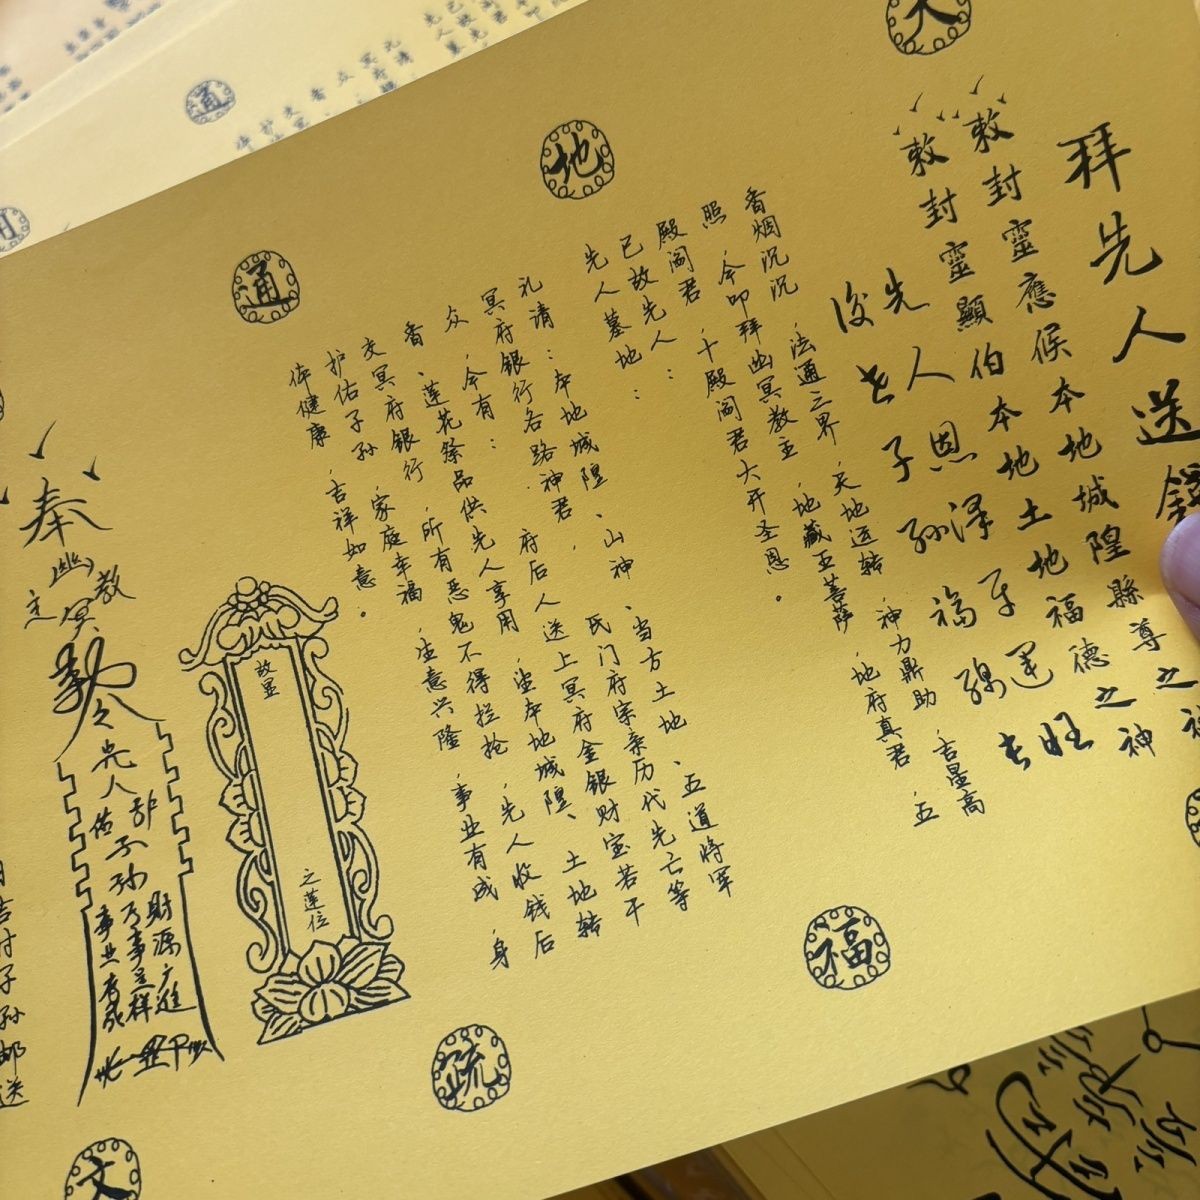 拜先人送錢
敕封靈應候本地城隍縣尊之神
敕封靈顯伯本地土地福德之神
先人恩澤子運旺
后世子孫福綿長
香烟沉沉，法通三界，天地运转，神力鼎助，吉星高
照，今叩拜幽冥教主，地藏王菩萨，地府真君，五
殿阎君，十殿阎君大开圣恩。
已故先人：
先人墓地：
礼请：本地城隍、山神、当方土地、五道将军
冥府银行各路神君，氏门府宗亲历代先亡等
众，今有：府后人送上冥府金银财宝若干
香、莲花祭品供先人享用，望本地城隍、土地转
交冥府银行，所有恶鬼不得拦抢，先人收钱后
护佑子孙，家庭幸福，生意兴隆，事业有成，身
体健康，吉祥如意。
故显
之莲位
奉
幽冥教主
令先人
护佑子孙万事呈祥
财源广进
事业有成
吉时子孙邮送
天
地
通
福
疏
文
通